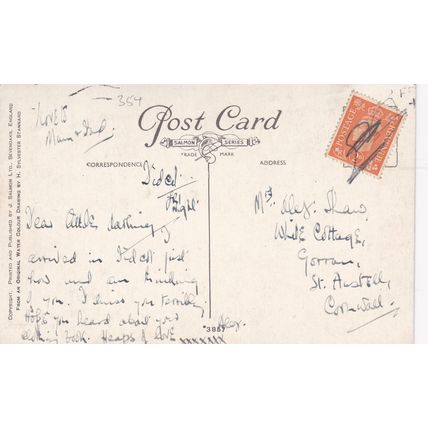 354
Love to
Mum & Dad.
Post Card
SALMON SERIES
TRADE MARK
CORRESPONDENCE
ADDRESS.
Didcot.
Fri. Night.
Dear Little Darling,
arrived in Didcot just
now and am thinking
of you. I miss you terribly.
Hope you heard about your
clothing book. Heaps of Love
Alex.
xxxxxxx
*3857
Mrs Alex. Shaw,
White Cottage,
Gorran,
St. Austell,
Cornwall.
POSTAGE
COPYRIGHT. PRINTED AND PUBLISHED BY J. SALMON LTD., SEVENOAKS, ENGLAND
FROM AN ORIGINAL WATER COLOUR DRAWING BY H. SYLVESTER STANNARD